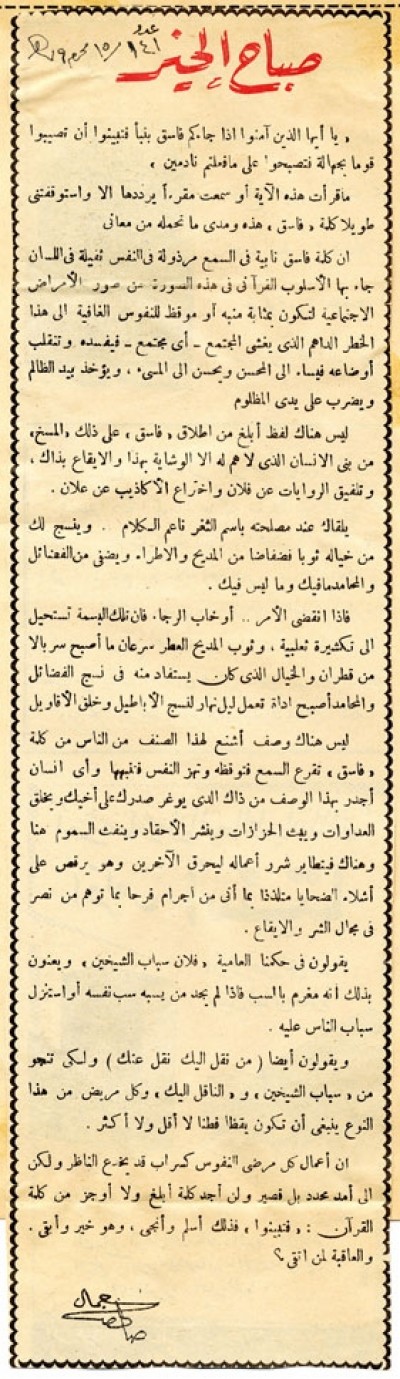 عدد
١٤١ ١٥/ محرم ٧٩
صباح الخير
« يا أيها الذين آمنوا اذا جاءكم فاسق بنبأ فتبينوا أن تصيبوا
قوما بجهالة فتصبحوا على مافعلتم نادمين »
ماقرأت هذه الآية أو سمعت مقرءاً يرددها الا واستوقفتنى
طويلا كلمة « فاسق » هذه ومدى ما تحمله من معانى
ان كلمة فاسق نابية فى السمع مرذولة فى النفس ثقيلة فى اللسان
جاء بها الأسلوب القرآنى فى هذه السورة عن صور الأمراض
الاجتماعية لتكون بمثابة منبه أو موقظ للنفوس الغافية الى هذا
الخطر الداهم الذى يغشى المجتمع ـ أى مجتمع ـ فيفسده وتنقلب
أوضاعه فيساء الى المحسن ويحسن الى المسىء ، ويؤخذ بيد الظالم
ويضرب على يدى المظلوم
ليس هناك لفظ أبلغ من اطلاق « فاسق » على ذلك « المسخ »
من بنى الانسان الذى لا هم له الا الوشاية بهذا والايقاع بذاك ،
وتلفيق الروايات عن فلان واختراع الأكاذيب عن علان .
يلقاك عند مصلحته باسم الثغر ناعم الكلام .. وينسج لك
من خياله ثوبا فضفاضا من المديح والاطراء ويضفى من الفضائل
والمحامد مافيك وما ليس فيك .
فاذا انقضى الأمر .. أو خاب الرجاء فان تلك البسمة تستحيل
الى تكشيرة ثعلبية ، وثوب المديح العطر سرعان ما أصبح سربالا
من قطران والخيال الذى كان يستفاد منه فى نسج الفضائل
والمحامد أصبح اداة تعمل ليل نهار لنسج الأباطيل وخلق الأقاويل
ليس هناك وصف أشنع لهذا الصنف من الناس من كلمة
« فاسق » تقرع السمع فتوقظه وتهز النفس فتنبهها وأى انسان
أجدر بهذا الوصف من ذاك الذى يوغر صدرك على أخيك ويخلق
العداوات ويبث الحزازات وينشر الأحقاد وينفث السموم هنا
وهناك فيتطاير شرر أعماله ليحرق الآخرين وهو يرقص على
أشلاء الضحايا متلذذا بما أتى من اجرام فرحا بما توهم من نصر
فى مجال الشر والايقاع .
يقولون فى حكمنا العامية « فلان سباب الشيخين » ويعنون
بذلك أنه مغرم بالسب فاذا لم يجد من يسبه سب نفسه أو استنزل
سباب الناس عليه .
ويقولون أيضا ( من نقل اليك نقل عنك ) ولكى تنجو
من « سباب الشيخين » و « الناقل اليك » وكل مريض من هذا
النوع ينبغى أن تكون يقظا فطنا لا أقل ولا أكثر .
ان أعمال كل مرضى النفوس كسراب قد يخدع الناظر ولكن
الى أمد محدد بل قصير ولن أجد كلمة أبلغ ولا أوجز من كلمة
القرآن : « فتبينوا » فذلك أسلم وأنجى ، وهو خير وأبقى .
والعاقبة لمن اتقى ؟